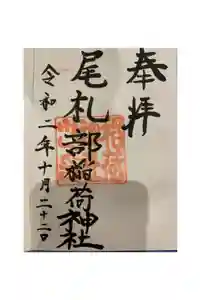 奉拝
尾札部稲荷神社
令和二年十月二十二日